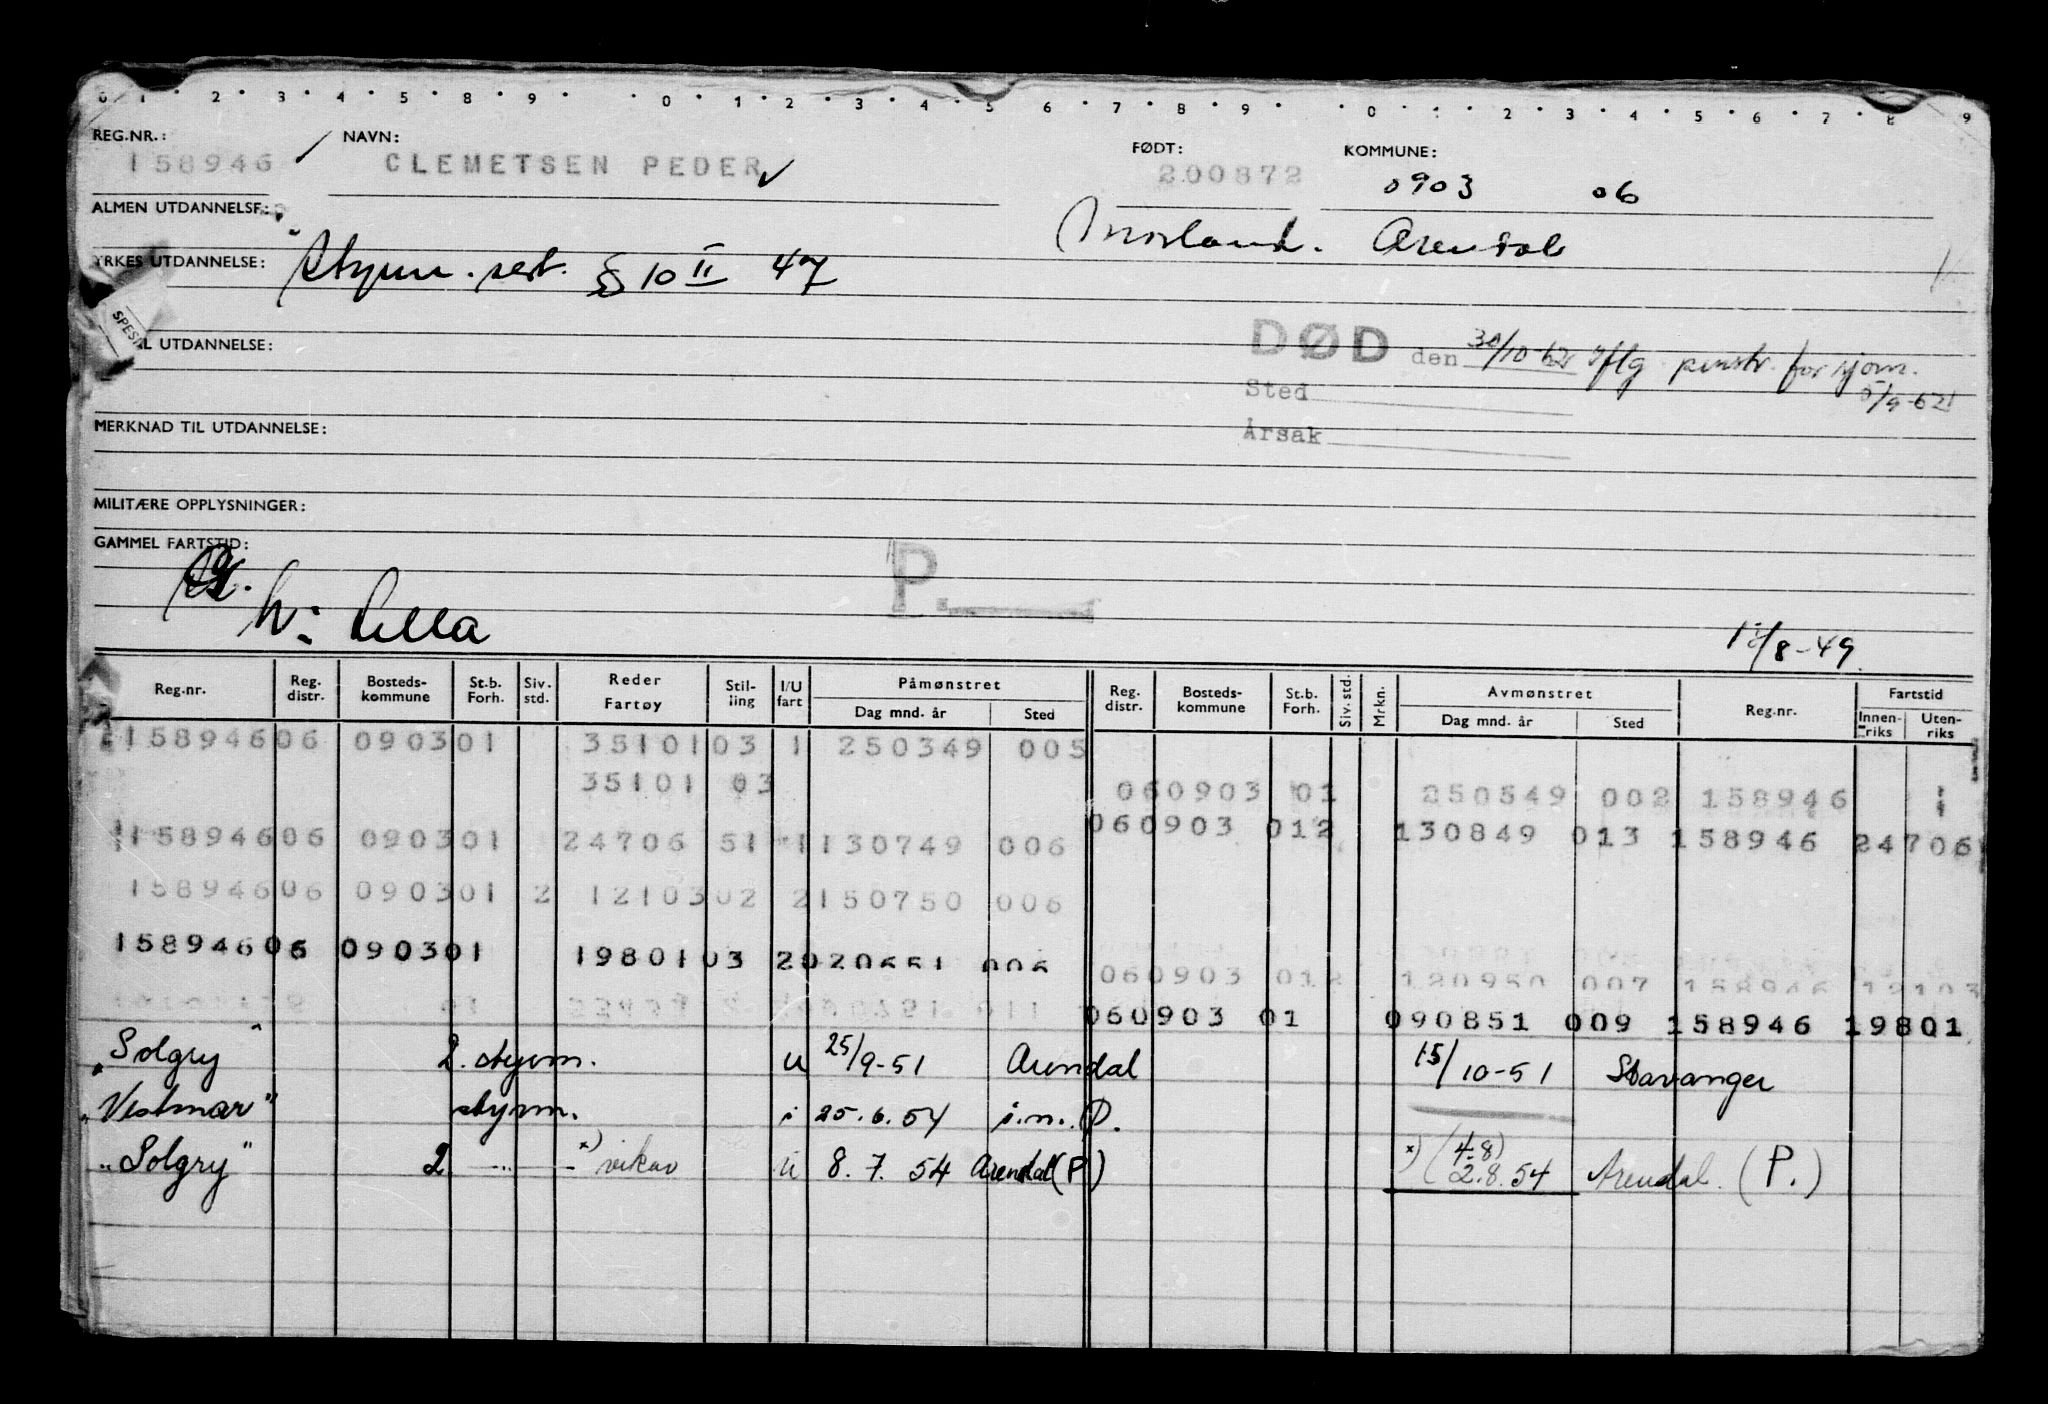 0 1 2 3 4 5 8 9 0 1 2 3 4 5 6 7 8 9 0 1 2 3 4 5 6 7 8 9
REG.NR.: NAVN: FØDT: KOMMUNE:
158946 CLEMETSEN PEDER 200872 0903 06
ALMEN UTDANNELSE:
Arendal
YRKES UTDANNELSE: Styrm. sert. § 10 II 47
SPESI
L UTDANNELSE:
DØD den 30/10-62 iflg. penstr. for sjøm.
5/9-62
Sted
Årsak
MERKNAD TIL UTDANNELSE:
MILITÆRE OPPLYSNINGER:
GAMMEL FARTSTID:
P.
Lilla
/8-49
Reg.nr. Reg. distr. Bosteds-kommune St.b. Forh. Siv. std. Reder Fartøy Stil-ling I/U fart Påmønstret Dag mnd. år Sted Reg. distr. Bosteds-kommune St.b. Forh. Siv. std. Mrkn. Avmønstret Dag mnd. år Sted Reg.nr. Fartstid Innen-riks Uten-riks
158946 06 0903 01 35101 03 1 250349 005
35101 03 06 0903 01 250549 002 158946
158946 06 0903 01 24706 51 1 130749 006 06 0903 012 130849 013 158946 24706
158946 06 0903 01 2 12103 02 2 150750 006
158946 06 0903 01 19801 03 2 020651 006
06 0903 012 120950 007 158946 12103
011 06 0903 01 090851 009 158946 19801
"Solgry" 2. styrm. u 25/9-51 Arendal 15/10-51 Stavanger
"Vestmar" styrm. i 25.6.54 i.m. P.
"Solgry" 2 —"— x) vikar u 8.7.54 Arendal (P) x) (4-8) 2.8.54 Arendal. (P.)